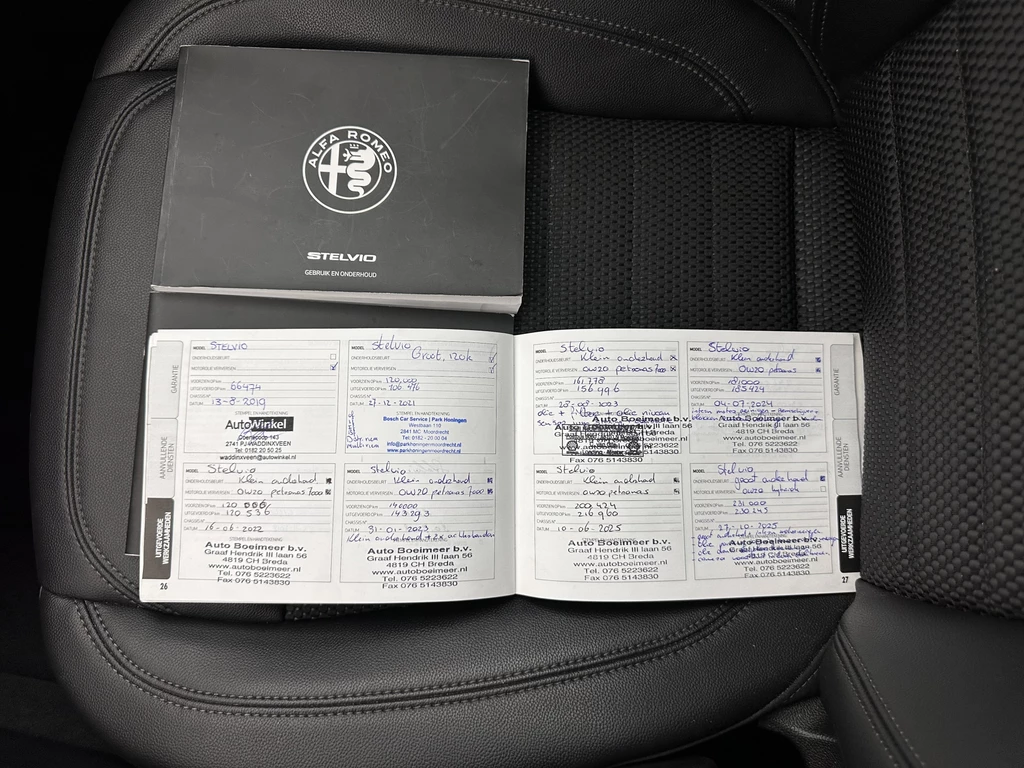 ALFA ROMEO
STELVIO
GEBRUIK EN ONDERHOUD
GARANTIE
AANVULLENDE DIENSTEN
UITGEVOERDE WERKZAAMHEDEN
26
MODEL STELVIO
ONDERHOUDSBEURT
MOTOROLIE VERVERSEN
VOORZIEN OP km
UITGEVOERD OP km 66474
CHASSIS Nº
DATUM 13-8-2019
STEMPEL EN HANDTEKENING
AutoWinkel
2741 PJ WADDINXVEEN
Tel: 0182 20 50 25
waddinxveen@autowinkel.nl
MODEL Stelvio
ONDERHOUDSBEURT Groot, 120k
MOTOROLIE VERVERSEN
VOORZIEN OP km 120,000
UITGEVOERD OP km 106.476
CHASSIS Nº
DATUM 27-12-2021
STEMPEL EN HANDTEKENING
Bosch Car Service | Park Honingen
Westbaan 110
2841 MC Moordrecht
Tel: 0182 - 20 50 04
info@parkhoningenmoordrecht.nl
www.parkhoningenmoordrecht.nl
MODEL Stelvio
ONDERHOUDSBEURT Klein onderhoud
MOTOROLIE VERVERSEN 0W20 petronas 7000
VOORZIEN OP km 120
UITGEVOERD OP km 120 536
CHASSIS Nº
DATUM 16-06-2022
Auto Boeimeer b.v.
Graaf Hendrik III laan 56
4819 CH Breda
www.autoboeimeer.nl
Tel. 076 5223622
Fax 076 5143830
MODEL Stelvio
ONDERHOUDSBEURT Klein onderhoud
MOTOROLIE VERVERSEN 0W20 petronas 7000
VOORZIEN OP km 140000
UITGEVOERD OP km 143293
CHASSIS Nº
DATUM 31-01-2023
Klein onderhoud + 2x achterbanden
Auto Boeimeer b.v.
Graaf Hendrik III laan 56
4819 CH Breda
www.autoboeimeer.nl
Tel. 076 5223622
Fax 076 5143830
MODEL Stelvio
ONDERHOUDSBEURT Klein onderhoud
MOTOROLIE VERVERSEN 0W20 petronas 7000
VOORZIEN OP km 161778
UITGEVOERD OP km 156496
CHASSIS Nº
DATUM 28-08-2023
olie + filter + olie niveau
Auto Boeimeer b.v.
Graaf Hendrik III laan 56
4819 CH Breda
Fax 076 5143830
MODEL Stelvio
ONDERHOUDSBEURT Klein onderhoud
MOTOROLIE VERVERSEN 0W20 petronas
VOORZIEN OP km 181000
UITGEVOERD OP km 185424
CHASSIS Nº
DATUM 04-07-2024
Auto Boeimeer b.v.
Graaf Hendrik III laan 56
4819 CH Breda
www.autoboeimeer.nl
Tel. 076 5223622
Fax 076 5143830
MODEL Stelvio
ONDERHOUDSBEURT Klein onderhoud
MOTOROLIE VERVERSEN 0W20 petronas
VOORZIEN OP km 200424
UITGEVOERD OP km 216900
CHASSIS Nº
DATUM 10-06-2025
Auto Boeimeer b.v.
Graaf Hendrik III laan 56
4819 CH Breda
www.autoboeimeer.nl
Tel. 076 5223622
Fax 076 5143830
MODEL Stelvio
ONDERHOUDSBEURT groot onderhoud
MOTOROLIE VERVERSEN 0W20 hybride
VOORZIEN OP km 231000
UITGEVOERD OP km 230245
CHASSIS Nº
DATUM 27-10-2025
Auto Boeimeer b.v.
Graaf Hendrik III laan 56
4819 CH Breda
www.autoboeimeer.nl
Tel. 076 5223622
Fax 076 5143830
GARANTIE
AANVULLENDE DIENSTEN
UITGEVOERDE WERKZAAMHEDEN
27